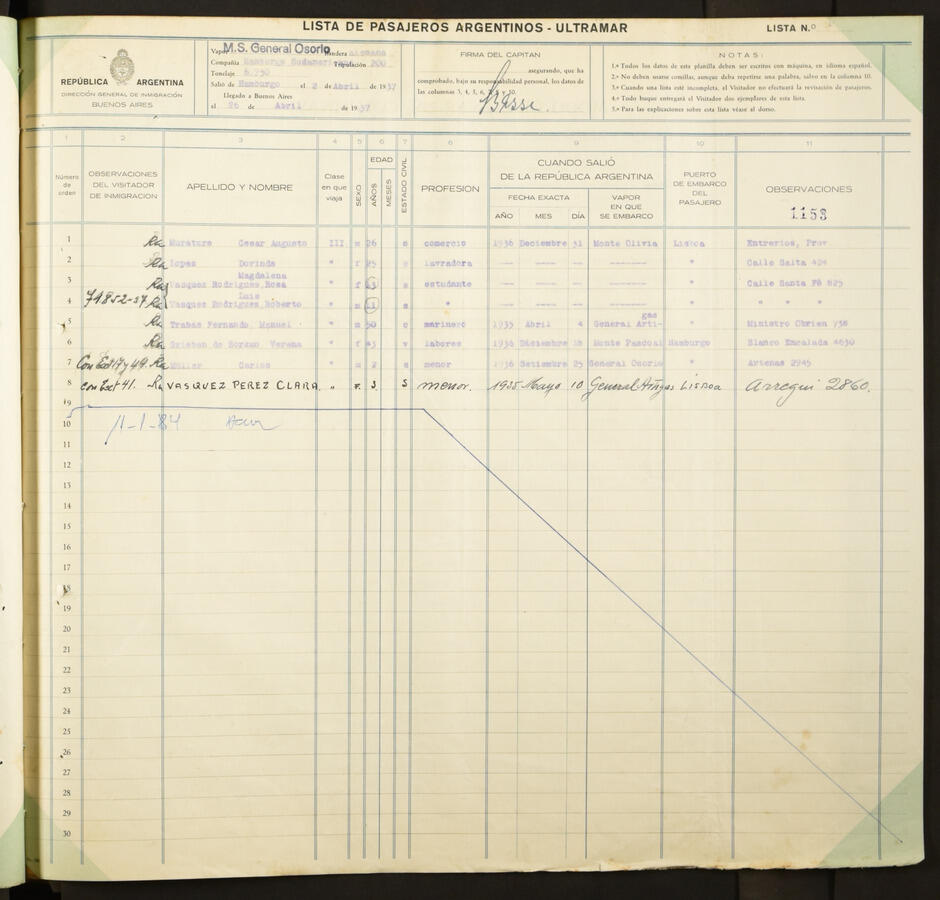 LISTA DE PASAJEROS ARGENTINOS - ULTRAMAR
LISTA N.º
REPÚBLICA ARGENTINA
DIRECCIÓN GENERAL DE INMIGRACIÓN
BUENOS AIRES
Vapor M.S. General Osorio Bandera
Compañía Hamburgo Sudamericana Tripulación 200
Tonelaje 6.750
Salió de Hamburgo el 2 de Abril de 1937
Llegado a Buenos Aires
el 26 de Abril de 1937
FIRMA DEL CAPITAN
asegurando, que ha
comprobado, bajo su responsabilidad personal, los datos de
las columnas 3, 4, 5, 6, 7, 8 y 10.
NOTAS:
1.ª Todos los datos de esta planilla deben ser escritos con máquina, en idioma español.
2.ª No deben usarse comillas, aunque deba repetirse una palabra, salvo en la columna 10.
3.ª Cuando una lista esté incompleta, el Visitador no efectuará la revisación de pasajeros.
4.ª Todo buque entregará al Visitador dos ejemplares de esta lista.
5.ª Para las explicaciones sobre esta lista véase al dorso.
1 2 3 4 5 6 7 8 9 10 11
Número de orden
OBSERVACIONES DEL VISITADOR DE INMIGRACION
APELLIDO Y NOMBRE
Clase en que viaja
SEXO
EDAD
AÑOS
MESES
ESTADO CIVIL
PROFESION
CUANDO SALIÓ
DE LA REPÚBLICA ARGENTINA
FECHA EXACTA
AÑO MES DÍA
VAPOR EN QUE SE EMBARCO
PUERTO DE EMBARCO DEL PASAJERO
OBSERVACIONES
1153
1 Murature Cesar Augusto III m 26 s comercio 1936 Deciembre 31 Monte Olivia Lisboa Entrerios, Prov
2 Lopez Dorinda " f 25 lavradora — — — — " Calle Salta 424
Magdalena
3 Vasquez Rodrigues, Rosa " f 13 s estudante — — — — " Calle Santa Fé 825
Luis
4 74852-37 Vasquez Rodrigues, Roberto " m 11 s " — — — — " " " "
gas
5 Trabas Fernando, Manuel " m 50 c marinero 1935 Abril 4 General Arti- " Ministro Obrien 736
6 Verena " f 43 labores 1936 Diciembre 18 Monte Pascoal Hamburgo Blanco Encalada 4630
7 Con Ext 17 y 49. Müller Carlos " m 2 menor 1936 Setiembre 25 General Osorio " Artenas 2945
8 con Ext 41. VASQUEZ PEREZ CLARA. " F. 3 S menor. 1935 Mayo 10 General Artigas Lisboa Arregui 2860.
9
10 11-1-84
11
12
13
14
15
16
17
18
19
20
21
22
23
24
25
26
27
28
29
30